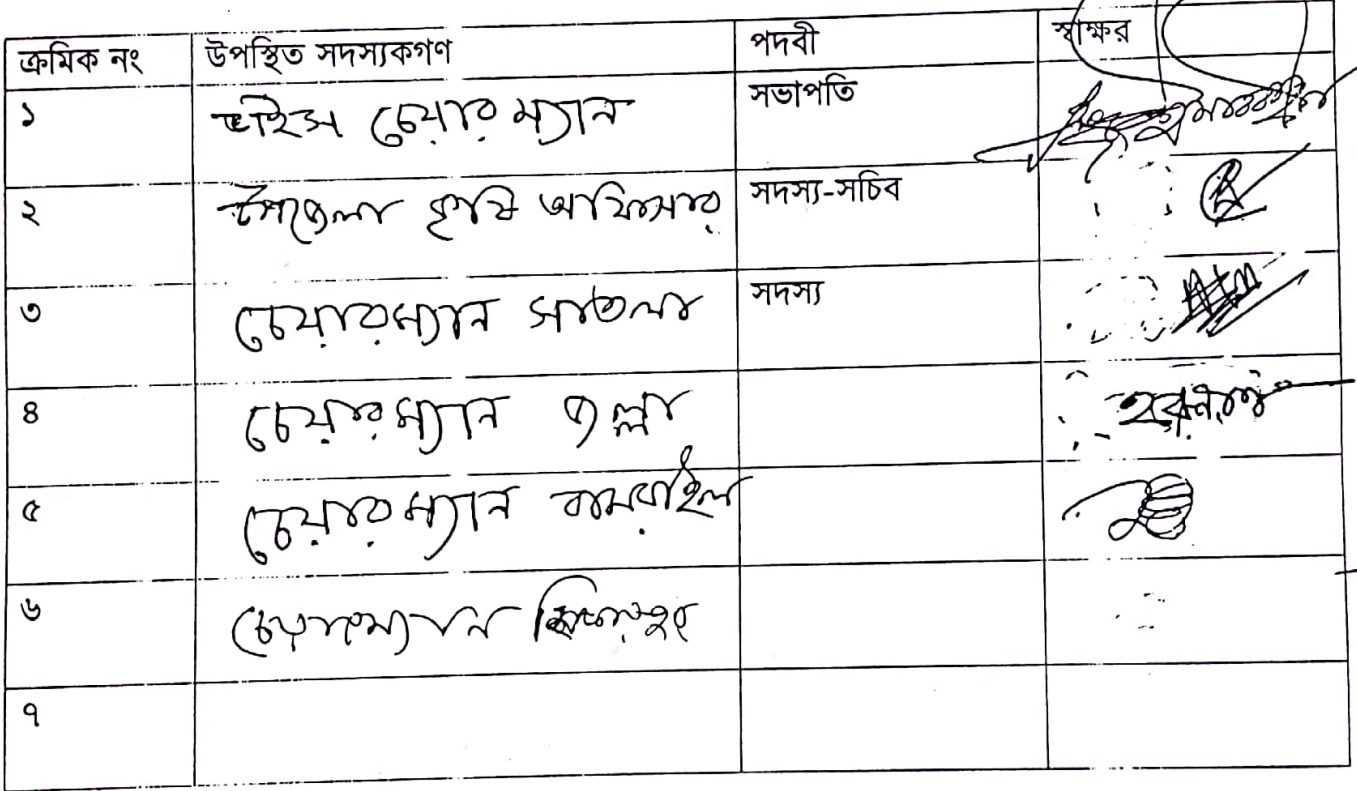 ক্রমিক নং উপস্থিত সদস্যকগণ পদবী স্বাক্ষর
১ ভাইস চেয়ারম্যান সভাপতি
২ উপজেলা কৃষি অফিসার সদস্য-সচিব
৩ চেয়ারম্যান সাতলা সদস্য
৪ চেয়ারম্যান
৫ চেয়ারম্যান বামরাইল
৬ চেয়ারম্যান
৭